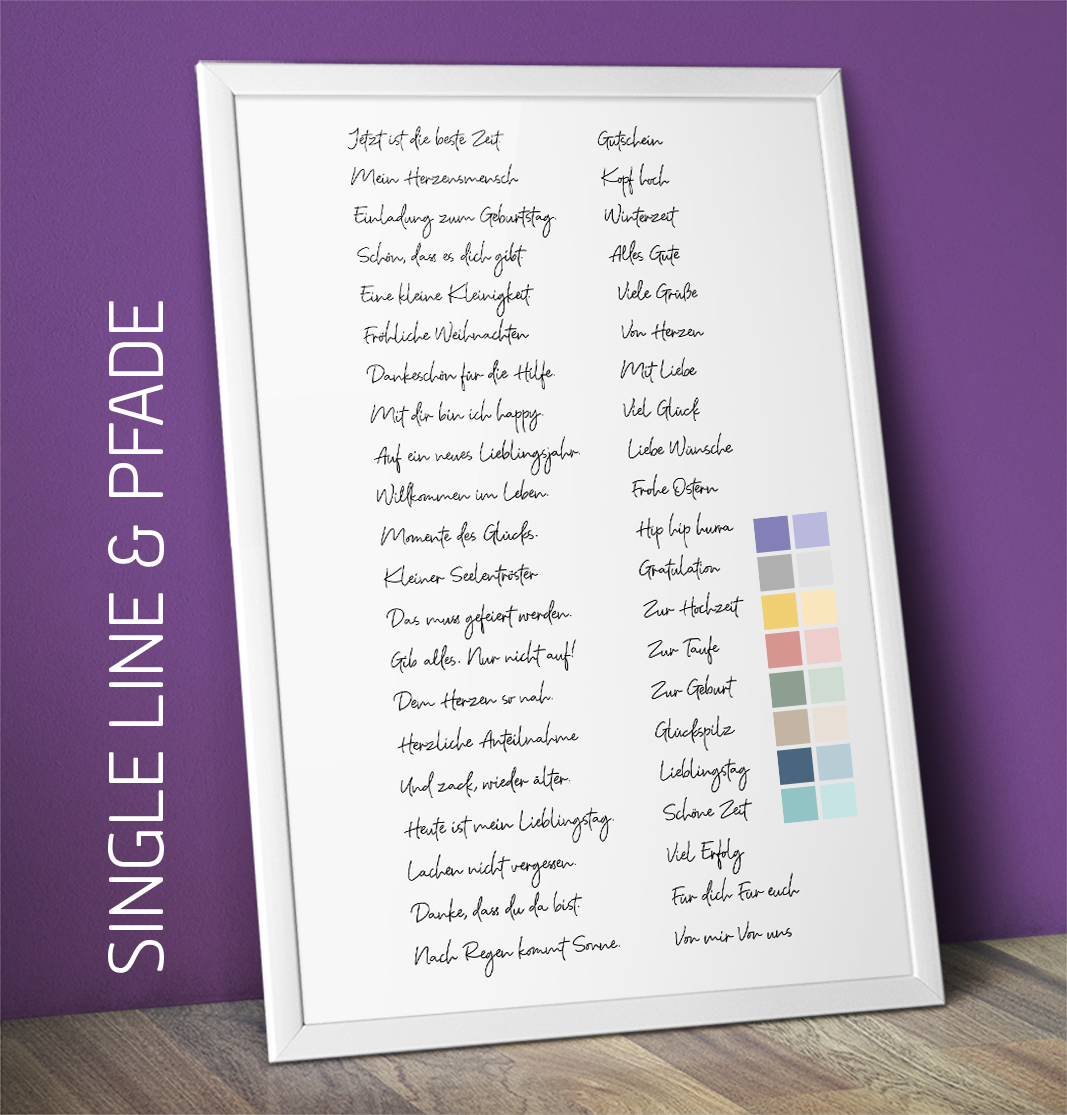 SINGLE LINE & PFADE
Jetzt ist die beste Zeit.
Mein Herzensmensch
Einladung zum Geburtstag.
Schön, dass es dich gibt.
Eine kleine Kleinigkeit.
Fröhliche Weihnachten
Dankeschön für die Hilfe.
Mit dir bin ich happy.
Auf ein neues Lieblingsjahr.
Willkommen im Leben.
Momente des Glücks.
Kleiner Seelentröster
Das muss gefeiert werden.
Gib alles. Nur nicht auf!
Dem Herzen so nah.
Herzliche Anteilnahme
Und zack, wieder älter.
Heute ist mein Lieblingstag.
Lachen nicht vergessen.
Danke, dass du da bist.
Nach Regen kommt Sonne.
Gutschein
Kopf hoch
Winterzeit
Alles Gute
Viele Grüße
Von Herzen
Mit Liebe
Viel Glück
Liebe Wünsche
Frohe Ostern
Hip hip hurra
Gratulation
Zur Hochzeit
Zur Taufe
Zur Geburt
Glückspilz
Lieblingstag
Schöne Zeit
Viel Erfolg
Für dich Für euch
Von mir Von uns